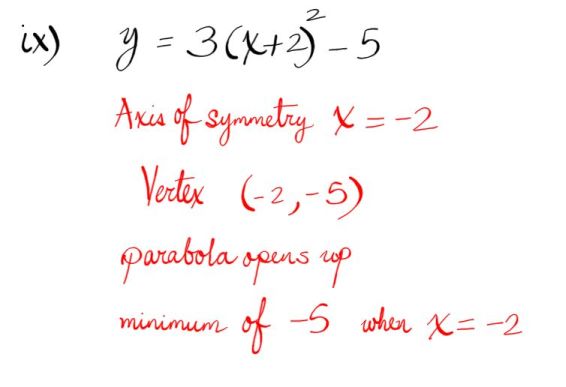 ix) y = 3(x+2)² - 5
Axis of symmetry x = -2
Vertex (-2, -5)
parabola opens up
minimum of -5 when x = -2